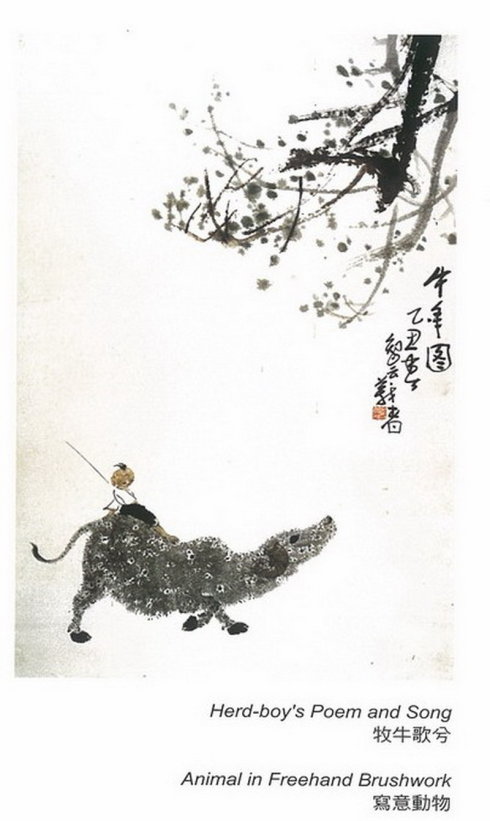 牛年图
乙丑春
Herd-boy's Poem and Song
牧牛歌兮
Animal in Freehand Brushwork
寫意動物